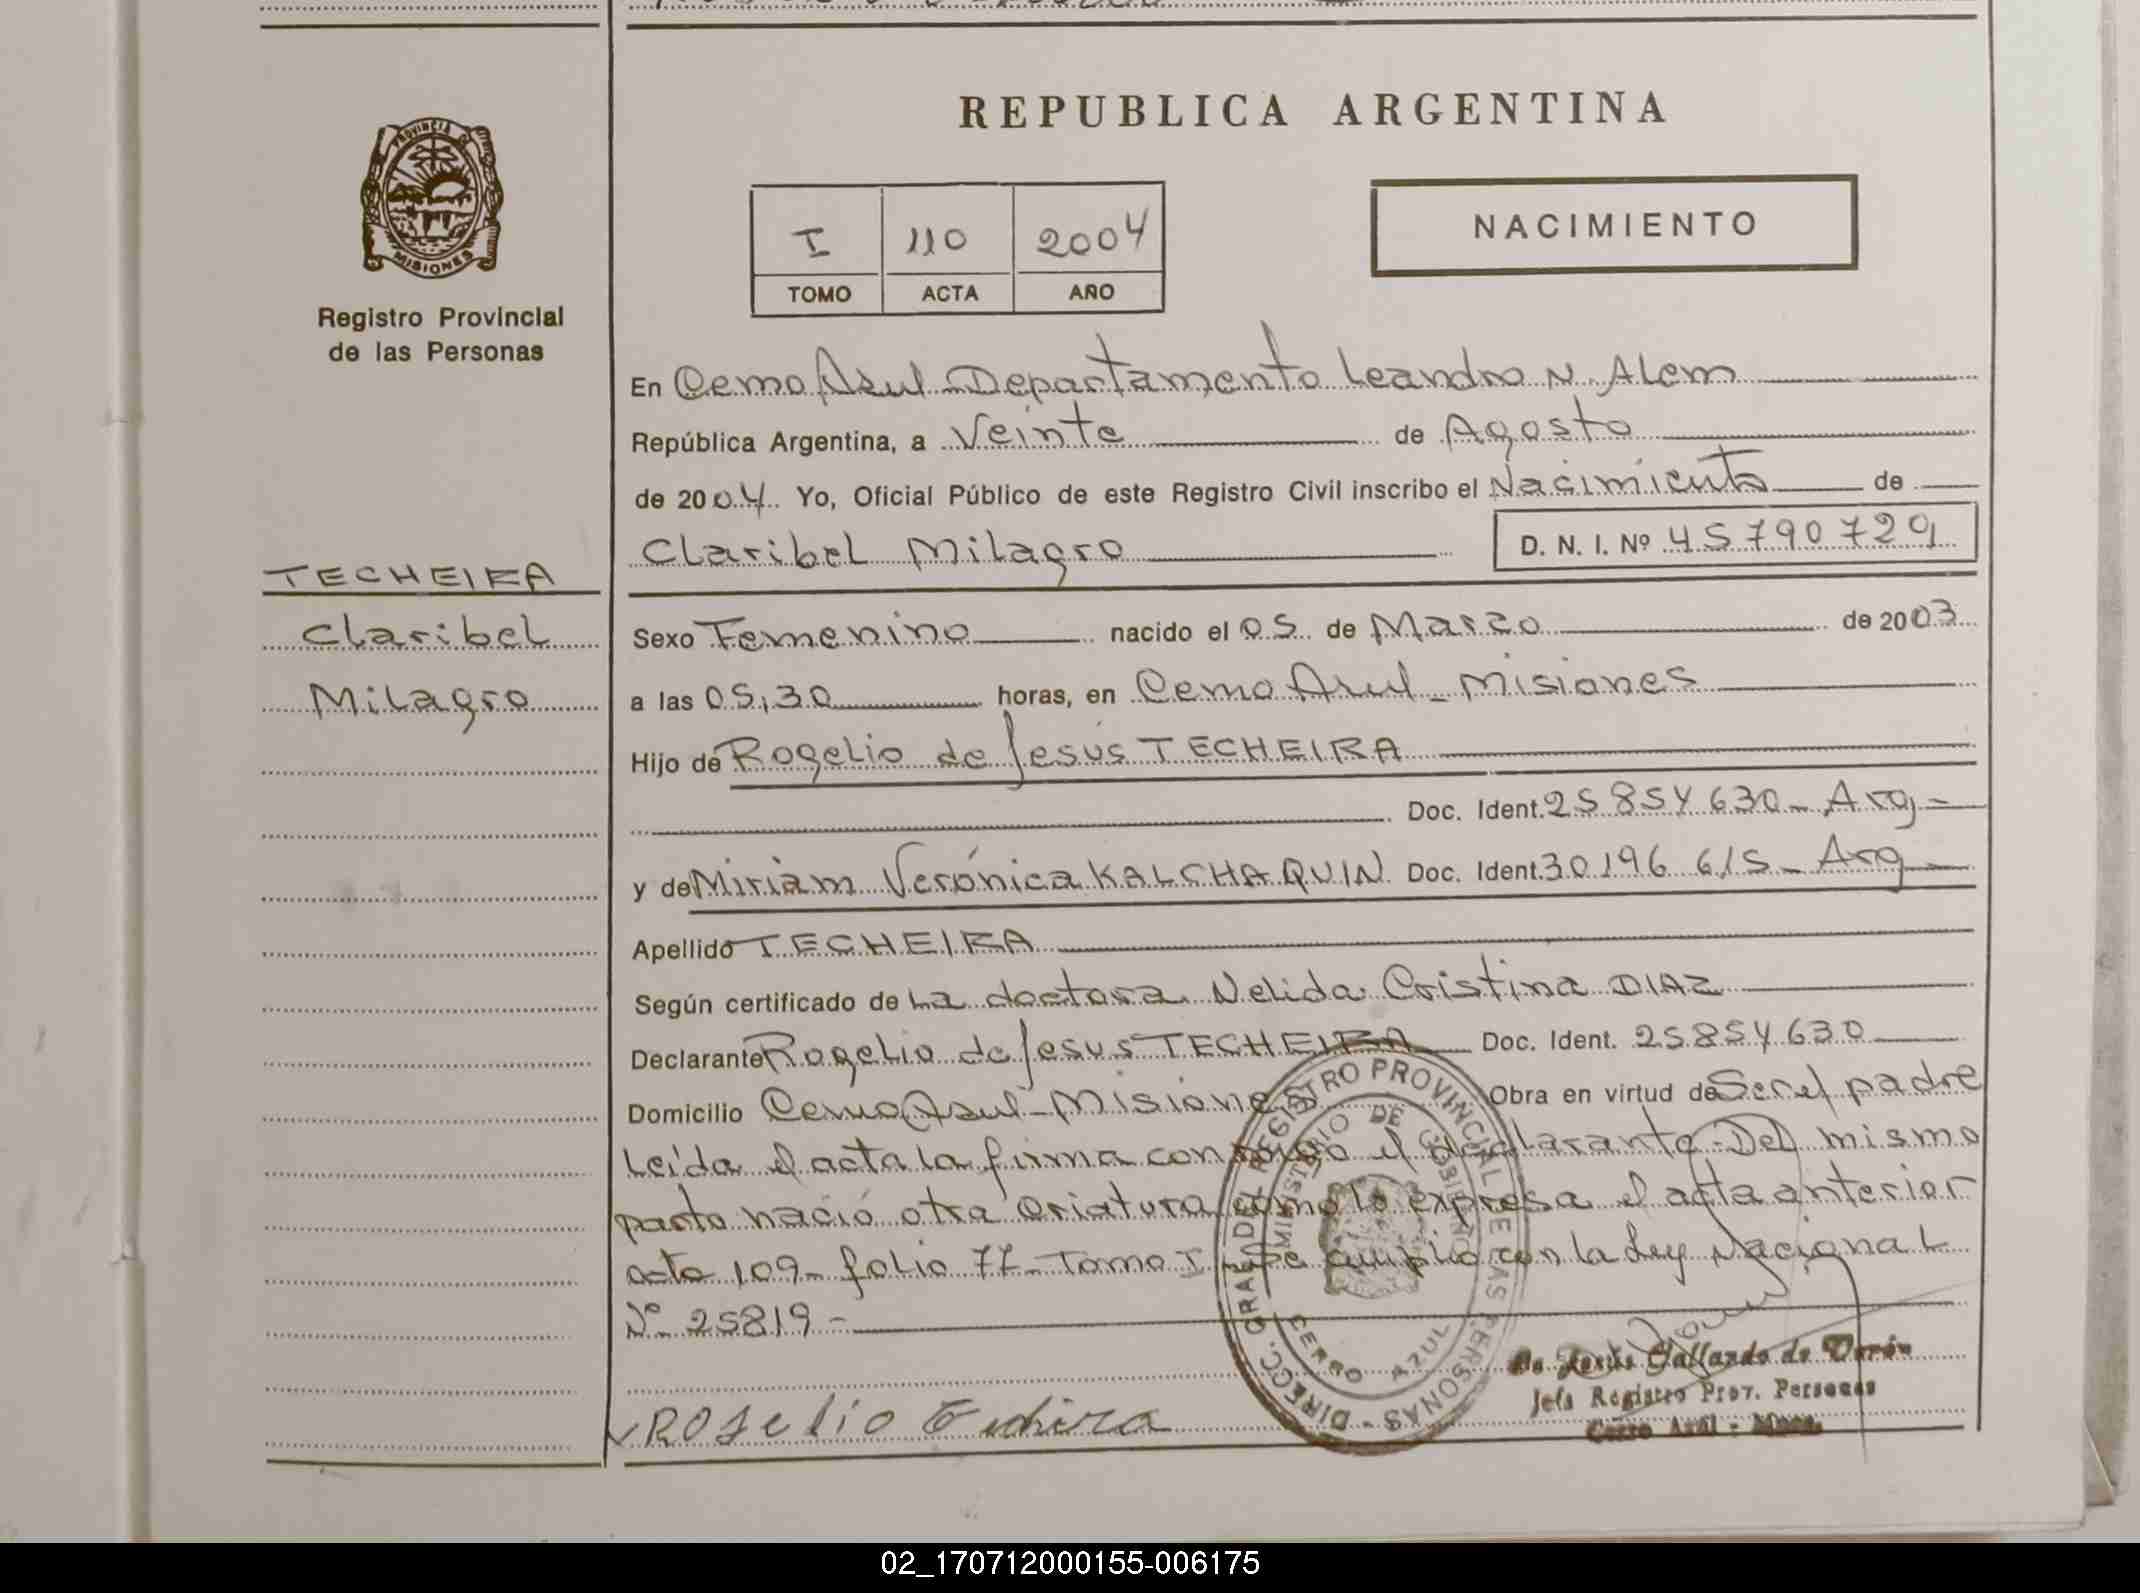 REPUBLICA ARGENTINA
PROVINCIA DE
MISIONES
Registro Provincial
de las Personas
NACIMIENTO
I 110 2004
TOMO ACTA AÑO
En Cerro Azul - Departamento Leandro N. Alem
República Argentina, a Veinte de Agosto
de 2004. Yo, Oficial Público de este Registro Civil inscribo el Nacimiento de
Claribel Milagro D. N. I. Nº 45790729
TECHEIRA
Claribel
Milagro
Sexo Femenino nacido el 05 de Marzo de 2003
a las 05,30 horas, en Cerro Azul - Misiones
Hijo de Rogelio de Jesús TECHEIRA
Doc. Ident. 25854630 - Arg -
y de Miriam Verónica KALCHAQUIN Doc. Ident. 30196615 - Arg -
Apellido TECHEIRA
Según certificado de La doctora Nelida Cristina DIAZ
Declarante Rogelio de Jesus TECHEIRA Doc. Ident. 25854630
Domicilio Cerro Azul - Misiones Obra en virtud de Ser el padre
Leida el acta la firma conmigo el declarante - Del mismo
parto nació otra criatura como lo expresa el acta anterior
acta 109 - folio 77 - Tomo I - Se cumplio con la Ley Nacional
Nº 25819 -
DIRECC. GRAL DEL REGISTRO PROVINCIAL DE LAS PERSONAS -
MINISTERIO DE GOBIERNO
CERRO AZUL
Jesús Gallardo de
Jefa Registro Prov. Personas
Cerro Azul - Mnes.
Rogelio Techeira
02_170712000155-006175